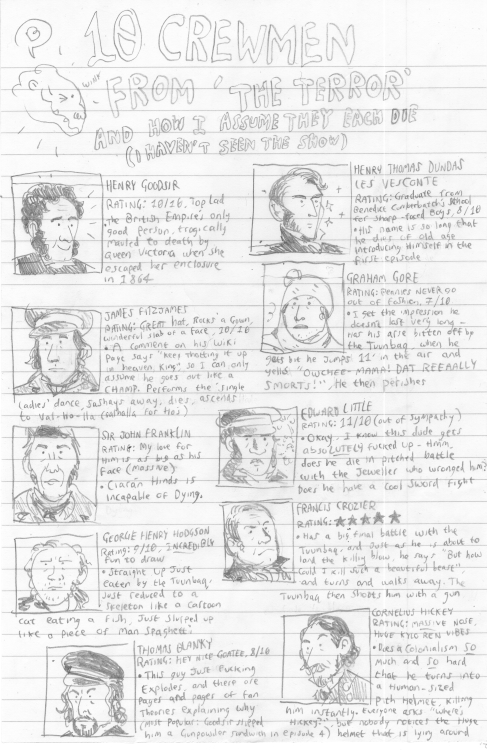 10 CREWMEN
WINK
FROM 'THE TERROR'
AND HOW I ASSUME THEY EACH DIE
(I HAVEN'T SEEN THE SHOW)
HENRY GOODSIR
RATING: 10/10, Top Lad
The British Empire's only
good person, tragically
mauled to death by
Queen Victoria when she
escaped her enclosure
in 1864
HENRY THOMAS DUNDAS
LES VESCONTE
RATING: Graduate from
Benedict Cumberbatch's School
for sharp-faced Boys, 8/10
• His name is so long that
he dies of old age
introducing himself in the
first episode
JAMES FITZJAMES
RATING: GREAT hat, Rocks a Gown,
wonderful slab of a face, 10/10
• A comment on his Wiki
page says "keep thotting it up
in heaven, King" so I can only
assume he goes out like a
CHAMP. Performs the 'single
ladies' dance, sashays away, dies, ascends
to Val-Ho-lla (Valhalla for Hos)
GRAHAM GORE
RATING: Beanies NEVER go
out of fashion, 7/10
• I get the impression he
doesn't last very long -
has his arse bitten off by
the Tuunbaq. When he
gets bit he jumps 11' in the air and
yells "OWCHEE-MAMA! DAT REEAALLY
SMORTS!", He then perishes
SIR JOHN FRANKLIN
RATING: My love for
him is as big as his
face (MASSIVE)
• Ciarán Hinds is
incapable of Dying.
EDWARD LITTLE
RATING: 11/10 (out of sympathy)
• Okay, I know this dude gets
absoLUTELY fucked up - Hmm,
does he die in pitched battle
with the Jeweller who wronged him?
Does he have a cool sword fight
GEORGE HENRY HODGSON
Rating: 9/10, INCREDIBLY
fun to draw
• Straight up just
eaten by the Tuunbaq.
Just reduced to a
skeleton like a cartoon
cat eating a fish, Just slurped up
like a piece of man spaghetti
FRANCIS CROZIER
RATING: ★★★★★
• Has a big final battle with the
Tuunbaq, and just as he is about to
land the killing blow, he says "But how
could I kill such a beautiful beast",
and turns and walks away. The
Tuunbaq then shoots him with a gun
THOMAS BLANKY
RATING: HEY NICE GOATEE, 8/10
• This guy just fucking
Explodes, and there are
pages and pages of fan
theories explaining why
(Most Popular: Goodsir slipped
him a Gunpowder sandwich in episode 4)
CORNELIUS HICKEY
RATING: MASSIVE NOSE,
HUGE KYLO REN VIBES
• Does colonialism SO
much and SO hard
that he turns into
a Human-sized
Pith Helmet, killing
him instantly. Everyone asks "where's
Hickey?", but nobody notices the Huge
helmet that is lying around